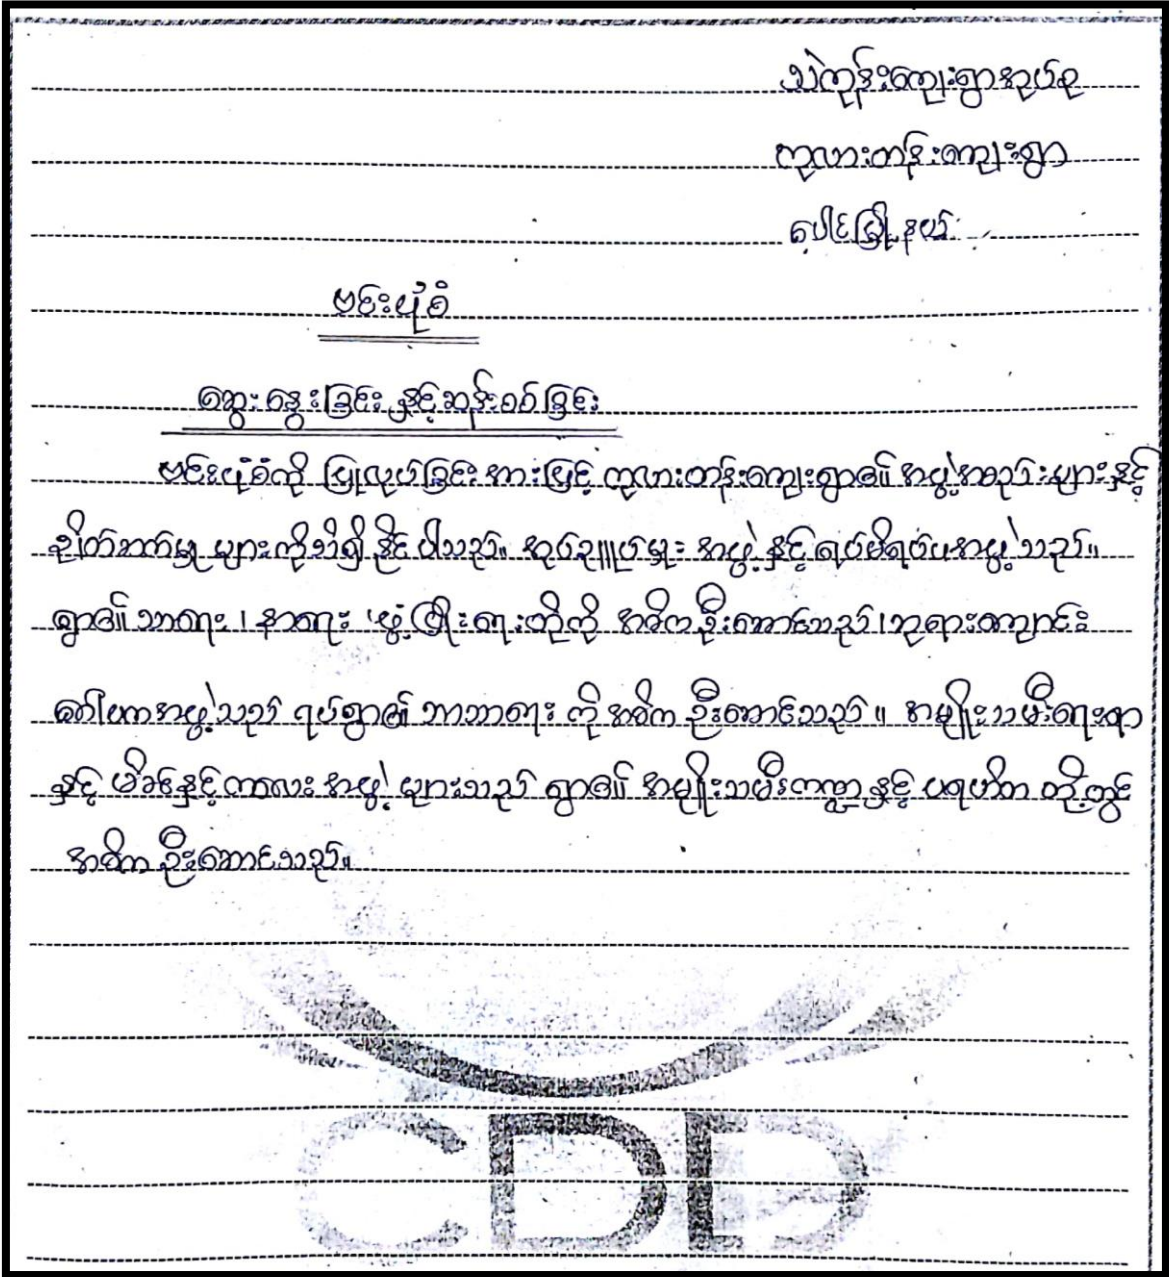 သဲကုန်းကျေးရွာအုပ်စု
ကုလားတန်းကျေးရွာ
ပေါင်မြို့နယ်
ဗင်းပုံစံ
ဆွေးနွေးခြင်းနှင့်ဆန်းစစ်ခြင်း
ဗင်းပုံစံကို ပြုလုပ်ခြင်းအားဖြင့် ကုလားတန်းကျေးရွာ၏ အဖွဲ့အစည်းများနှင့်
ချိတ်ဆက်မှုများကိုသိရှိနိုင်ပါသည်။ အုပ်ချူပ်မှုး အဖွဲ့နှင့် ရပ်မိရပ်ဖအဖွဲ့သည်။
ရွာ၏ သာရေး၊ နာရေး၊ ဖွံ့ဖြိုးရေးတို့ကို အဓိကဦးဆောင်သည်၊ဘုရားကျောင်း
ဂေါပကအဖွဲ့သည် ရပ်ရွာ၏ ဘာသာရေး ကို အဓိက ဦးဆောင်သည်။ အမျိုးသမီးရေးရာ
နှင့် မိခင်နှင့်ကလေးအဖွဲ့ များသည် ရွာ၏ အမျိုးသမီးကဏ္ဍနှင့် ပရဟိတ တို့တွင်
အဓိကဦးဆောင်သည်။
CDD